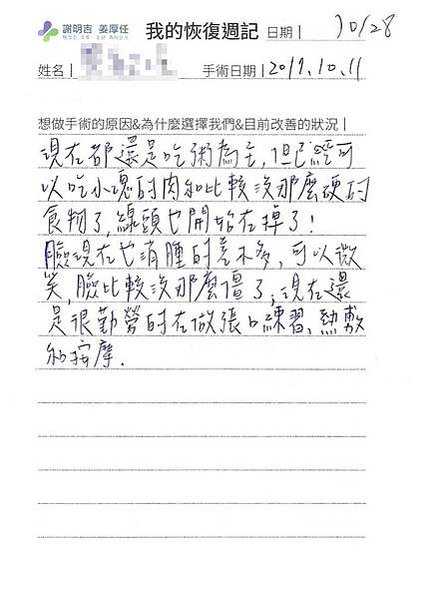 謝明吉 姜厚任 我的恢復週記 日期| 10/28
姓名| 手術日期| 2019.10.11
想做手術的原因&為什麼選擇我們&目前改善的狀況|
現在都還是吃粥為主,但已經可
以吃小塊的肉和比較沒那麼硬的
食物了,線頭也開始在掉了!
臉現在也消腫的差不多,可以微
笑,臉比較沒那麼僵了,現在還
是很勤勞的在做張口練習、熱敷
和按摩.